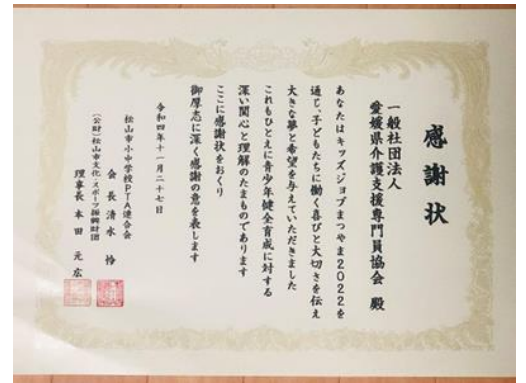 感謝状
一般社団法人
愛媛県介護支援専門員協会 殿
あなたはキッズジョブまつやま2022を
通じ、子どもたちに働く喜びと大切さを伝え
大きな夢と希望を与えていただきました
これもひとえに青少年健全育成に対する
深い関心と理解のたまものであります
ここに感謝状をおくり
御厚志に深く感謝の意を表します
令和四年十一月二十七日
松山市小中学校PTA連合会
会長 清水 怜
(公財)松山市文化・スポーツ振興財団
理事長 本田 元広